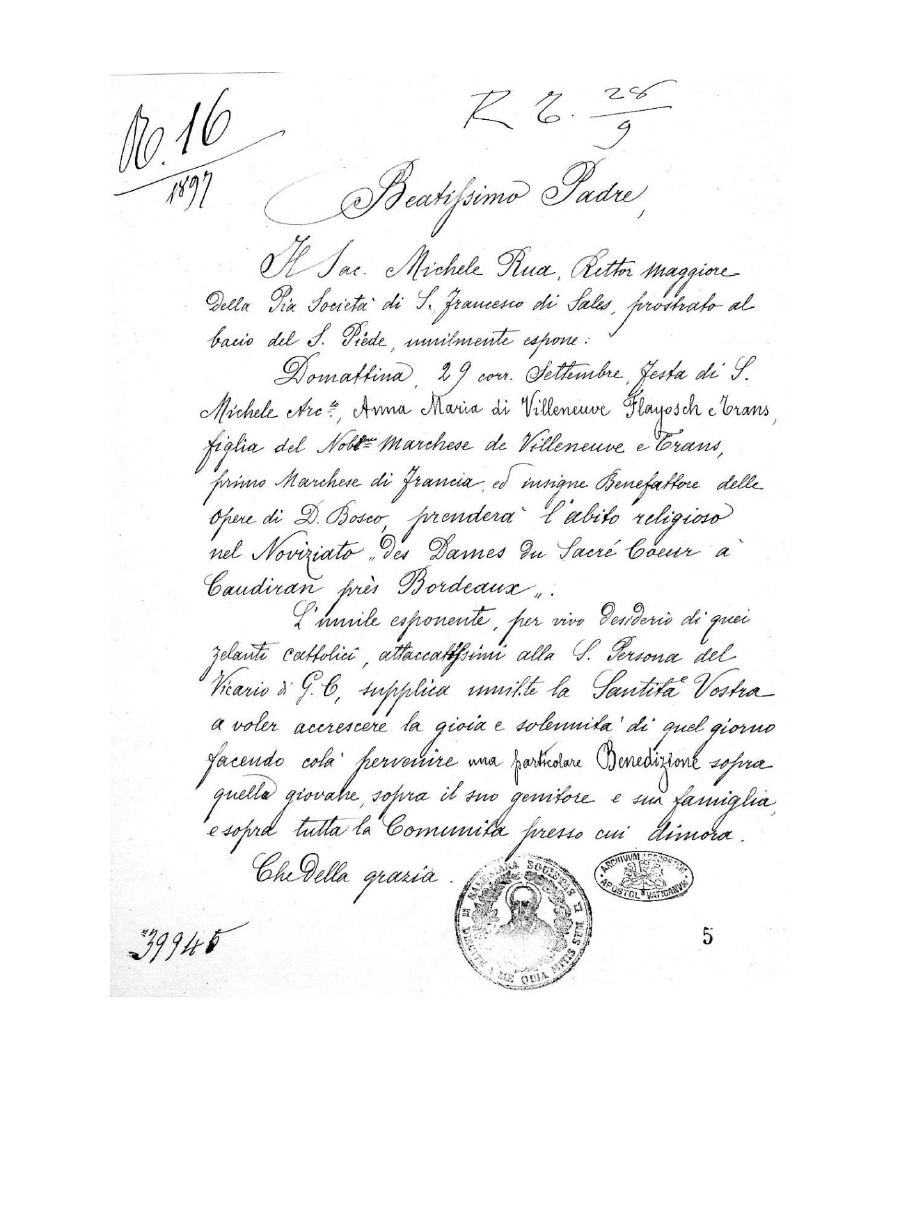 R E. 28/9
N. 16
1897
Beatissimo Padre,
Il Sac. Michele Rua, Rettor Maggiore
della Pia Società di S. Francesco di Sales, prostrato al
bacio del S. Piede, umilmente espone:
Domattina, 29 corr. Settembre, festa di S.
Michele Arc.lo, Anna Maria di Villeneuve Flayosch e Trans,
figlia del Nob.mo Marchese de Villeneuve e Trans,
primo Marchese di Francia, ed insigne Benefattore delle
Opere di D. Bosco, prenderà l'abito religioso
nel Noviziato „des Dames du Sacré Coeur à
Caudiran près Bordeaux„.
L'umile esponente, per vivo desiderio di quei
zelanti cattolici, attaccatissimi alla S. Persona del
Vicario di G. C, supplica umil.te la Santità Vostra
a voler accrescere la gioia e solennità di quel giorno
facendo colà pervenire una particolare Benedizione sopra
quella giovane, sopra il suo genitore e sua famiglia,
e sopra tutta la Comunità presso cui dimora.
Che della grazia.
SALESIANA SOCIETAS
DISCITE A ME QUIA MITIS SUM
ARCHIVUM SECRETUM
APOSTOL. VATICANUM
39945
5